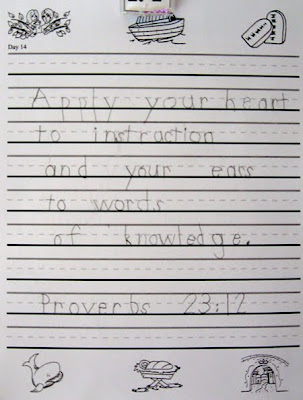 Day 14
Apply your heart
to instraction
and your ears
to words
of knowledge.
Proverbs 23:12